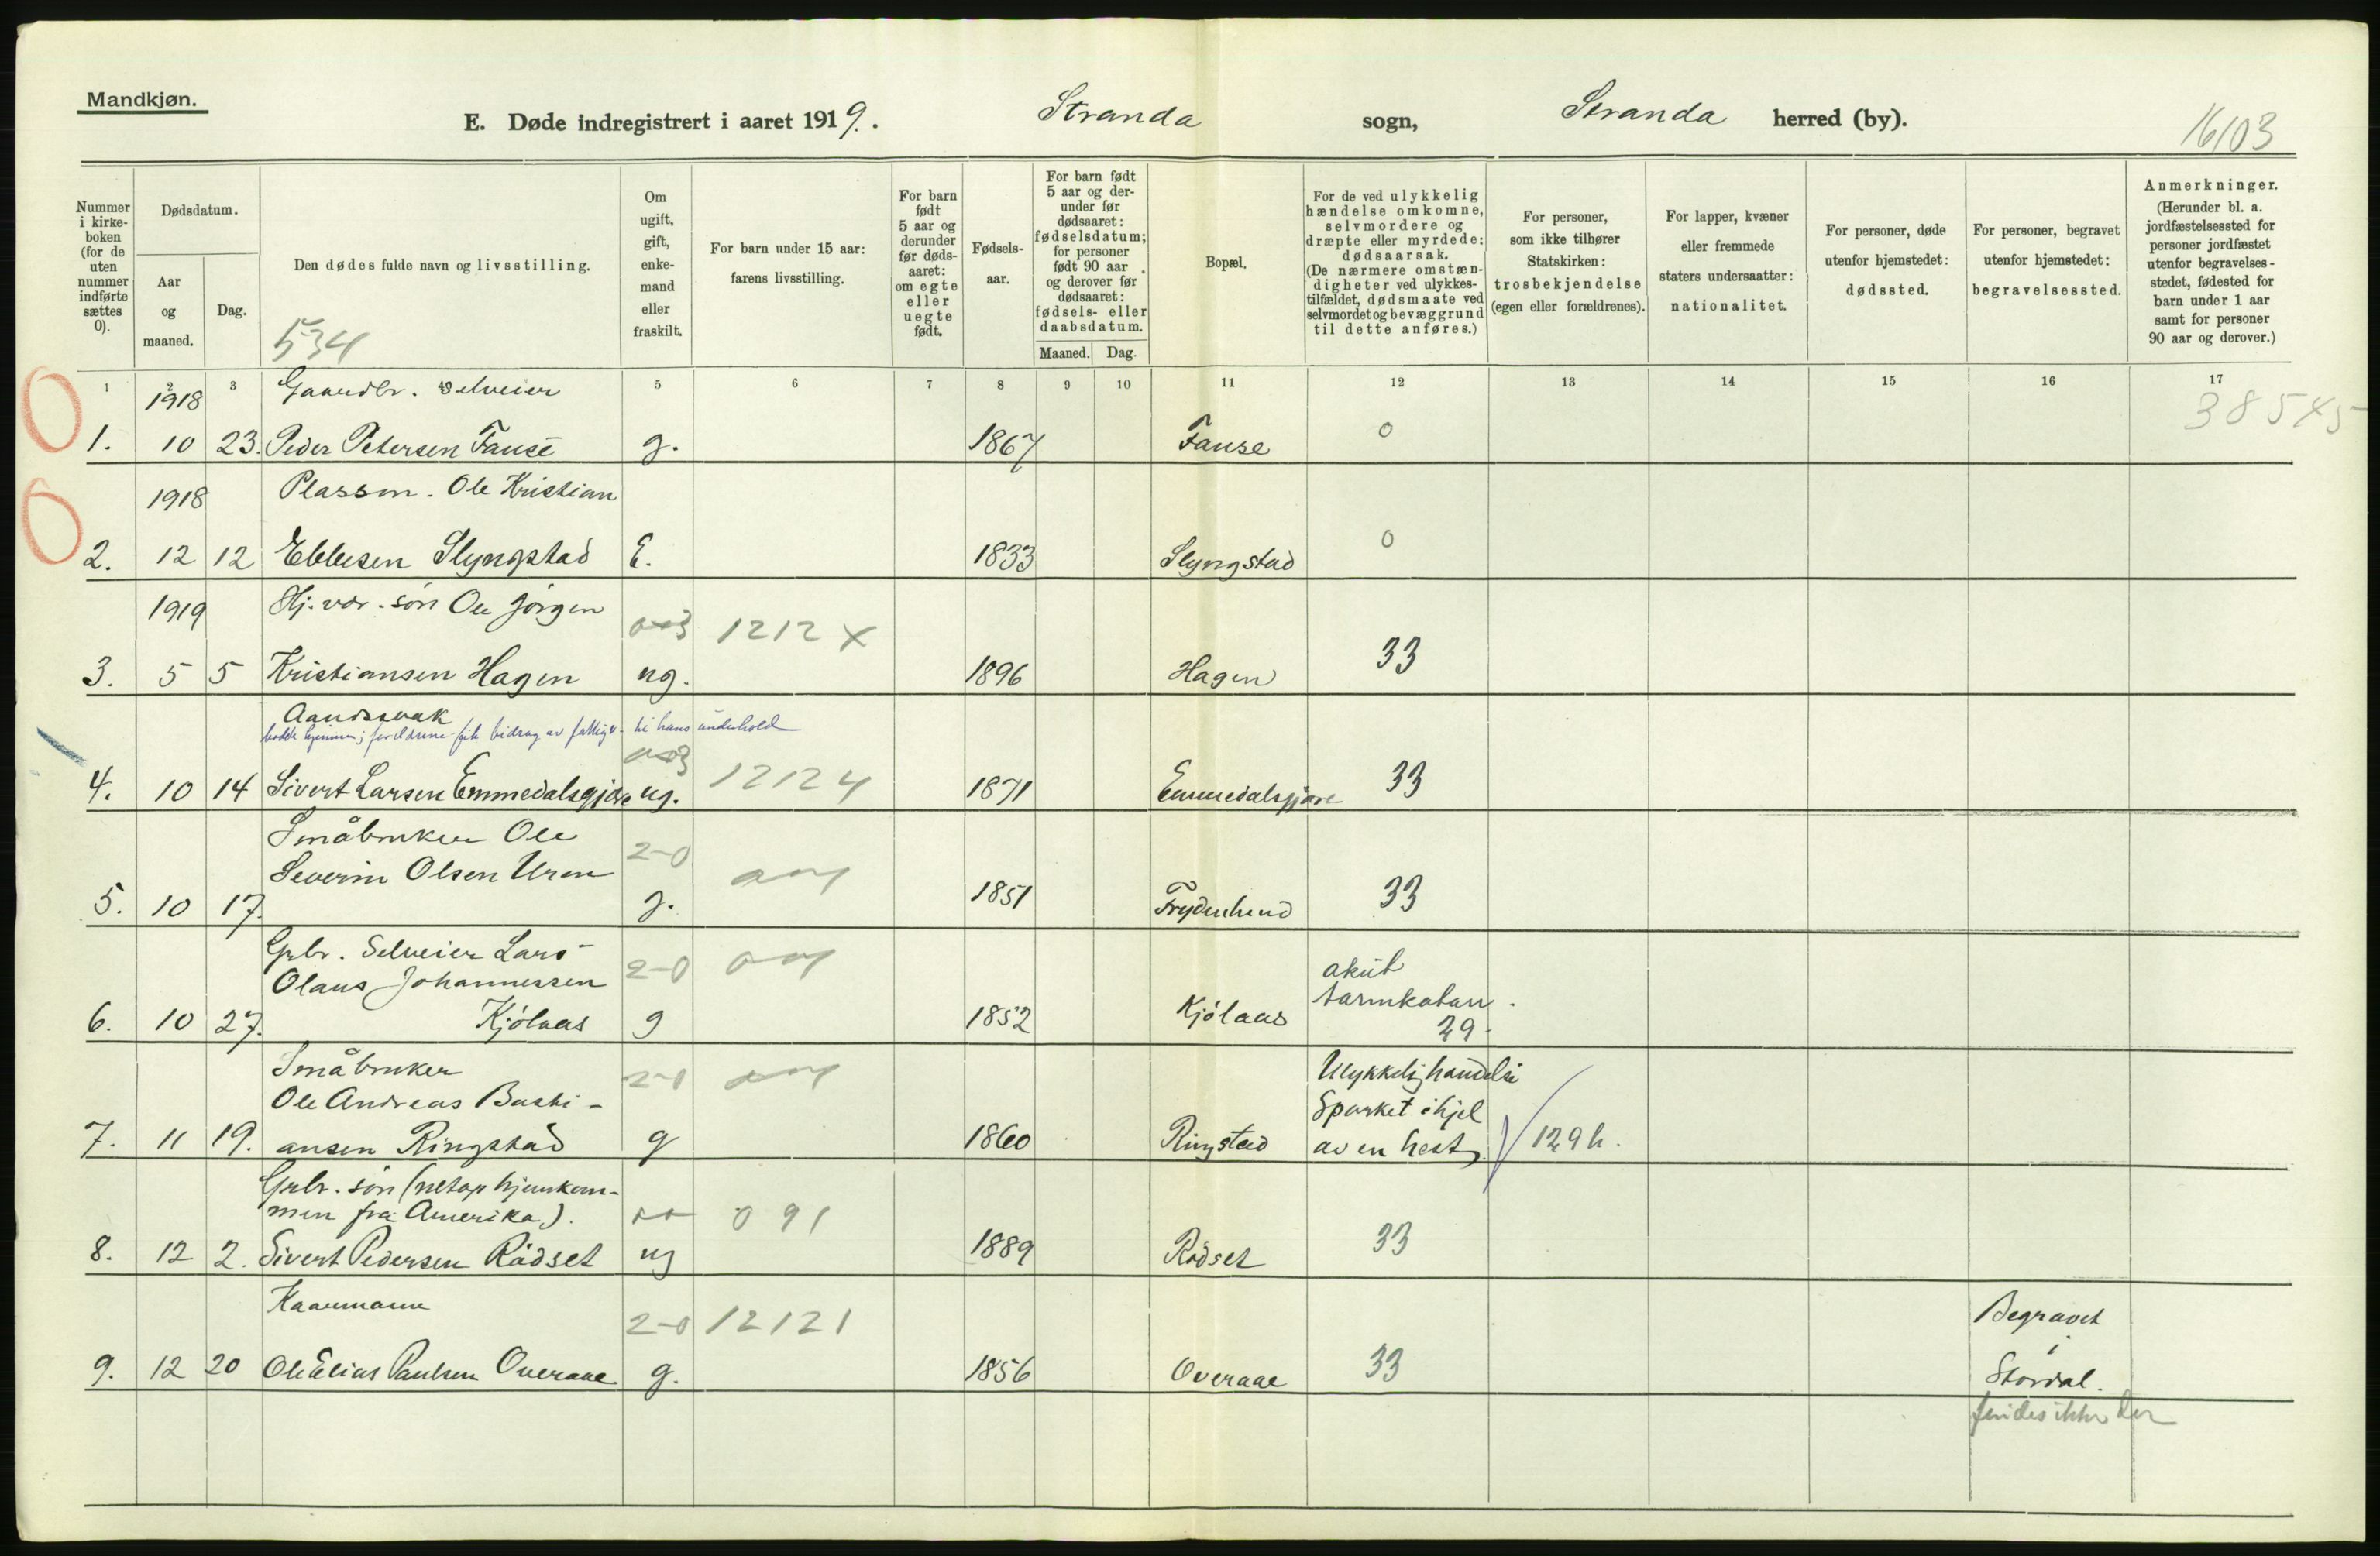 Mandkjøn.
E. Døde indregistrert i aaret 1919. Stranda sogn, Stranda herred (by).
16103
Nummer i kirke-boken (for de uten nummer indførte sættes 0).
Dødsdatum.
Aar og maaned.
Dag.
Den dødes fulde navn og livsstilling.
534
Om ugift, gift, enke-mand eller fraskilt.
For barn under 15 aar: farens livsstilling.
For barn født 5 aar og derunder før døds-aaret: om egte eller uegte født.
Fødsels-aar.
For barn født 5 aar og der-under før dødsaaret: fødselsdatum; for personer født 90 aar og derover før dødsaaret: fødsels- eller daabsdatum.
Maaned. Dag.
Bopæl.
For de ved ulykkelig hændelse omkomne, selvmordere og dræpte eller myrdede: dødsaarsak. (De nærmere omstæn-digheter ved ulykkes-tilfældet, dødsmaate ved selvmordet og bevæggrund til dette anføres.)
For personer, som ikke tilhører Statskirken: trosbekjendelse (egen eller forældrenes).
For lapper, kvæner eller fremmede staters undersaatter: nationalitet.
For personer, døde utenfor hjemstedet: dødssted.
For personer, begravet utenfor hjemstedet: begravelsessted.
Anmerkninger. (Herunder bl. a. jordfæstelsessted for personer jordfæstet utenfor begravelses-stedet, fødested for barn under 1 aar samt for personer 90 aar og derover.)
1 2 3 4 5 6 7 8 9 10 11 12 13 14 15 16 17
1918 Gaardbr. Selveier
38545
1. 10 23. Peder Petersen Fause g. 1867 Fause 0
1918 Plassm. Ole Kristian
2. 12 12 Ebbesen Slyngstad E. 1833 Slyngstad 0
1919 Hj. vær. søn Ole Jørgen
1212 x
3. 5 5 Kristiansen Hagen ug. 1896 Hagen 33
Aandssvak
bodde hjemme; forældrene fik bidrag av fattigv. til hans underhold
4. 10 14 Sivert Larsen Emmedalsgjære ug. 12124 1871 Emmedalsgjære 33
Småbruker Ole
2-0
Severin Olsen Uren
5. 10 17. g. 1851 Frydenlund 33
Grbr. Selveier Lars
Olaus Johannessen 2-0
akut
tarmkatarr.
6. 10 27. Kjølaas g 1852 Kjølaas 29.
Småbruker
Ole Andreas Basti-
Ulykkelig hændelse
Sparket ihjel
7. 11 19. ansen Ringstad g 1860 Ringstad av en hest 129 h.
Grbr. søn (netop hjemkom-
men fra Amerika). 0 91
8. 12 2. Sivert Pedersen Rødset ug 1889 Rødset 33
Kaarmann
2-0 12121
Begravet
i
9. 12 20 Ole Elias Paulsen Overaae g. 1856 Overaae 33 Stordal.
findes ikke der